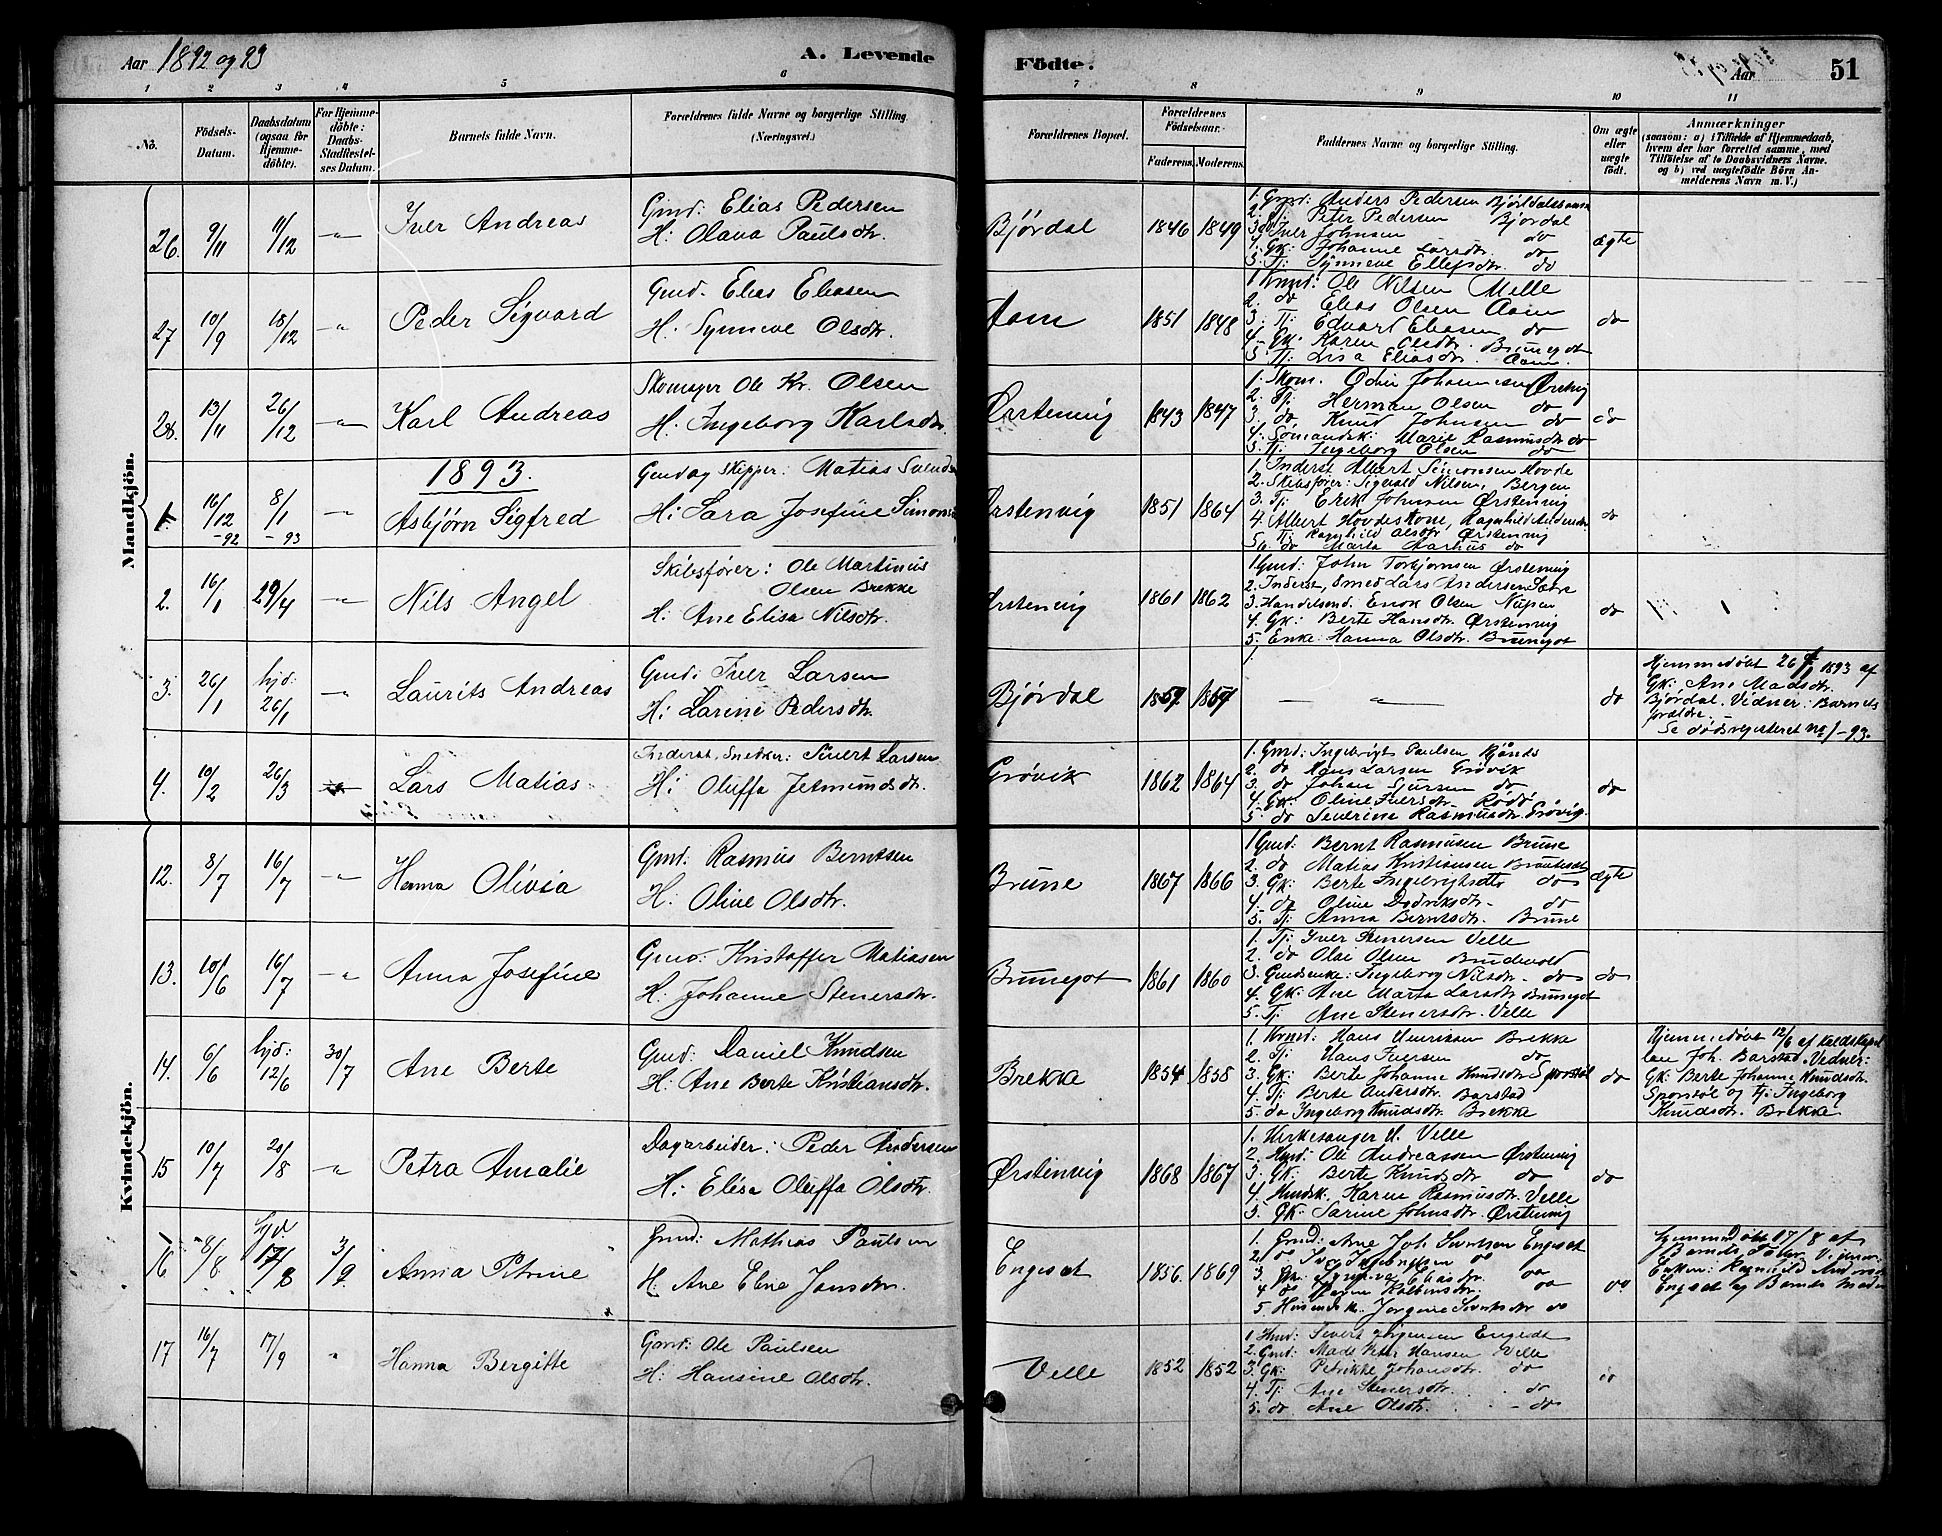 Aar 1892 og 93
A. Levende Födte.
Aar
51
1 2 3 4 5 6 7 8 9 10 11
No.
Födsels-Datum.
Daabsdatum (ogsaa for Hjemme-döbte).
For Hjemme-döbte: Daabs-Stadfæstel-ses Datum.
Barnets fulde Navn.
Forældrenes fulde Navne og borgerlige Stilling. (Næringsvei.)
Forældrenes Bopæl.
Forældrenes Födselsaar.
Faderens. Moderens.
Faddernes Navne og borgerlige Stilling.
Om ægte eller uægte födt.
Anmærkninger
(saasom: a) i Tilfælde af Hjemmedaab,
hvem der har forrettet samme, med
Tilföielse af to Daabsvidners Navne.
og b) ved uægtefödte Börn An-
melderens Navn m. V.)
Mandkjön.
26. 9/11 11/12 -"- Iver Andreas
Gmd. Elias Pedersen
H: Olava Paulsdtr.
Bjørdal 1846 1849
1. Gmd: Anders Pedersen
2. Tj: Peter Pedersen Bjørdal
3. Iver Johnsen do
4. Gk: Johanne Larsdtr. do
5. Tj: Synneve Ellefsdtr. do
ægte
27 10/9 18/12 -"- Peder Sigvard
Gmd. Elias Eliasen
H: Synneve Olsdtr.
Aam 1851 1848
1 Kmd: Ole Nilsen Melle
2. do Elias Olsen Aam
3. Tj: Edvart Eliasen do
4. Gk: Karen Olsdtr. Brunegot
5. Tj: Lisa Eliasdtr. Aam.
do
28. 13/11 26/12 -"- Karl Andreas
Skomager Ole Kr. Olsen
H: Ingeborg Karlsdtr.
Ørstenvig 1843 1847
1. Skom. Odin Johannesen Ørstenvig
2. Tj: Herman Olsen do
3. do Knud Johnsen do
4. Sømandsk: Marie Rasmusdtr do
5. Tj: Ingeborg Olsen do
do
1893.
1. 16/12 -92 8/1 -93 -"- Asbjørn Sigfred
Gmd og Skipper: Matias
H: Sara Josefine
Ørstenvig 1851 1864
1. Inderst Albert Simonsen Hovde
2. Skibsfører: Sigvald Nilsen, Bergen
3. Tj: Erik Johnsen Ørstenvig
4. Albert Hovdes Kone, Ragnhild
5. Tj: Ragnhild Olsdtr Ørstenvig
6. do Marta Aarhus do
do
2. 16/1 29/4 -"- Nils Angel
Skibsfører: Ole Martinius
Olsen Brekke
H: Ane Elisa Nilsdtr.
Ørstenvig 1861 1862
1 Gmd: John Torbjørnsen Ørstenvig
2. Inderst, Smed Lars Andersen
3. Handelsmd. Enok Olsen Nupen
4. Gk: Berte Hansdtr. Ørstenvig
5. Enke: Hanna Olsdtr. Brunegot
do
3. 26/1 hjd: 26/1 -"- Laurits Andreas
Gmd: Iver Larsen
H: Larine Pedersdtr.
Bjørdal
1.
— -"- —
do
Hjemmedøbt 26/1 1893 af
Gk: Ane Madsdtr.
Bjørdal. Vidner: Barnets
forældre.
Se dødsregisteret no 1-93.
4. 10/2 26/3 Lars Matias
Inderst, Snedker: Sivert Larsen
H: Oluffa Jetmundsdtr.
Grøvik 1862 1864
1. Gmd: Ingebrigt Paulsen
2. do Hans Larsen Grøvik
3. do Johan Sjursen do
4. Gk: Oline Iversdtr. Rødø
5. do Severine Rasmusdtr. Grøvig.
do
Kvindekjön.
12. 8/7 16/7 -"- Hanna Olivia
Gmd. Rasmus Berntsen
H: Oline Olsdtr.
Brune 1867 1866
1 Gmd: Bernt Rasmusen Brune
2. do Matias Kristiansen
3. Gk: Berte Ingebrigtsdtr do
4. do Oline Dødriksdtr. do
5. Tj: Anna Berntsdtr. Brune
ægte
13. 10/6 16/7 -"- Anna Josefine
Gmd: Kristoffer Matiasen
H: Johanne Stenersdtr.
Brunegot 1861 1860
1. Tj: Iver Stenersen Velle
2. do Olai Olsen Brudevold
3. Gmdsenke: Ingeborg Nilsdtr. do
4. Gk: Ane Marta Larsdtr Brunegot
5. Tj: Ane Stenersdtr. Velle
do
14. 6/6 hjd: 12/6 30/7 Ane Berte
Gmd: Daniel Knudsen
H: Ane Berte Kristiansdtr.
Brekke 1854 1858
1. Kmd: Hans Henriksen Brekke
2. Tj: Hans Iversen do
3. Gk: Berte Johanne Knudsdtr Sporstøl
4. Tj: Berte Andersdtr. Barstad
5. do Ingeborg Knudsdtr. Brekke
do
Hjemmedøbt 12/6 af
Joh. Barstad. Vidner:
Gk: Berte Johanne Knudsdtr.
Sporstøl og Tj: Ingeborg
Knudsdtr. Brekke
15 10/7 20/8 -"- Petra Amalie
Dagarbeider: Peder Andersen
H: Elisa Oluffa Olsdtr.
Ørstenvig 1868 1867
1. Kirkesanger A. Velle
2. Hmd: Ole Andreassen Ørstenvig
3. Gk: Berte Knudsdtr do
4. Hmdsk. Karen Rasmusdtr. Velle
5. Gk: Sarine Johnsdtr. Ørstenvig
do
16 8/8. hjd 17/8 3/9. Anna Petrine
Gmd: Mathias Paulsen
H. Ane Elne Jonsdtr.
Engeset 1856. 1869
1. Gmd: Arne Joh. Sivertsen Engeset
2. do do
3. Gk. Synneva Eliasdtr. do
4. do do
5. Husmdsk. Jørgine Sivertsdtr do
do
Hjemmedøbt 17/8 af
Barnets Fader. Vidner:
Enken: Ragnhild
Engeset og Barnets Moder
17 16/7 17/9 " Hanna Bergitte
Gmd: Ole Paulsen
H: Hansine Olsdtr.
Velle 1852 1852
1. Hmd: Sivert Jørgensen Engeset
2. Gmd: Mads Peter Hansen Velle
3. Gk: Petrikke Johansdtr. do
4. Tj: Ane Stenersdtr. do
5. do Ane Olsdtr. do
do